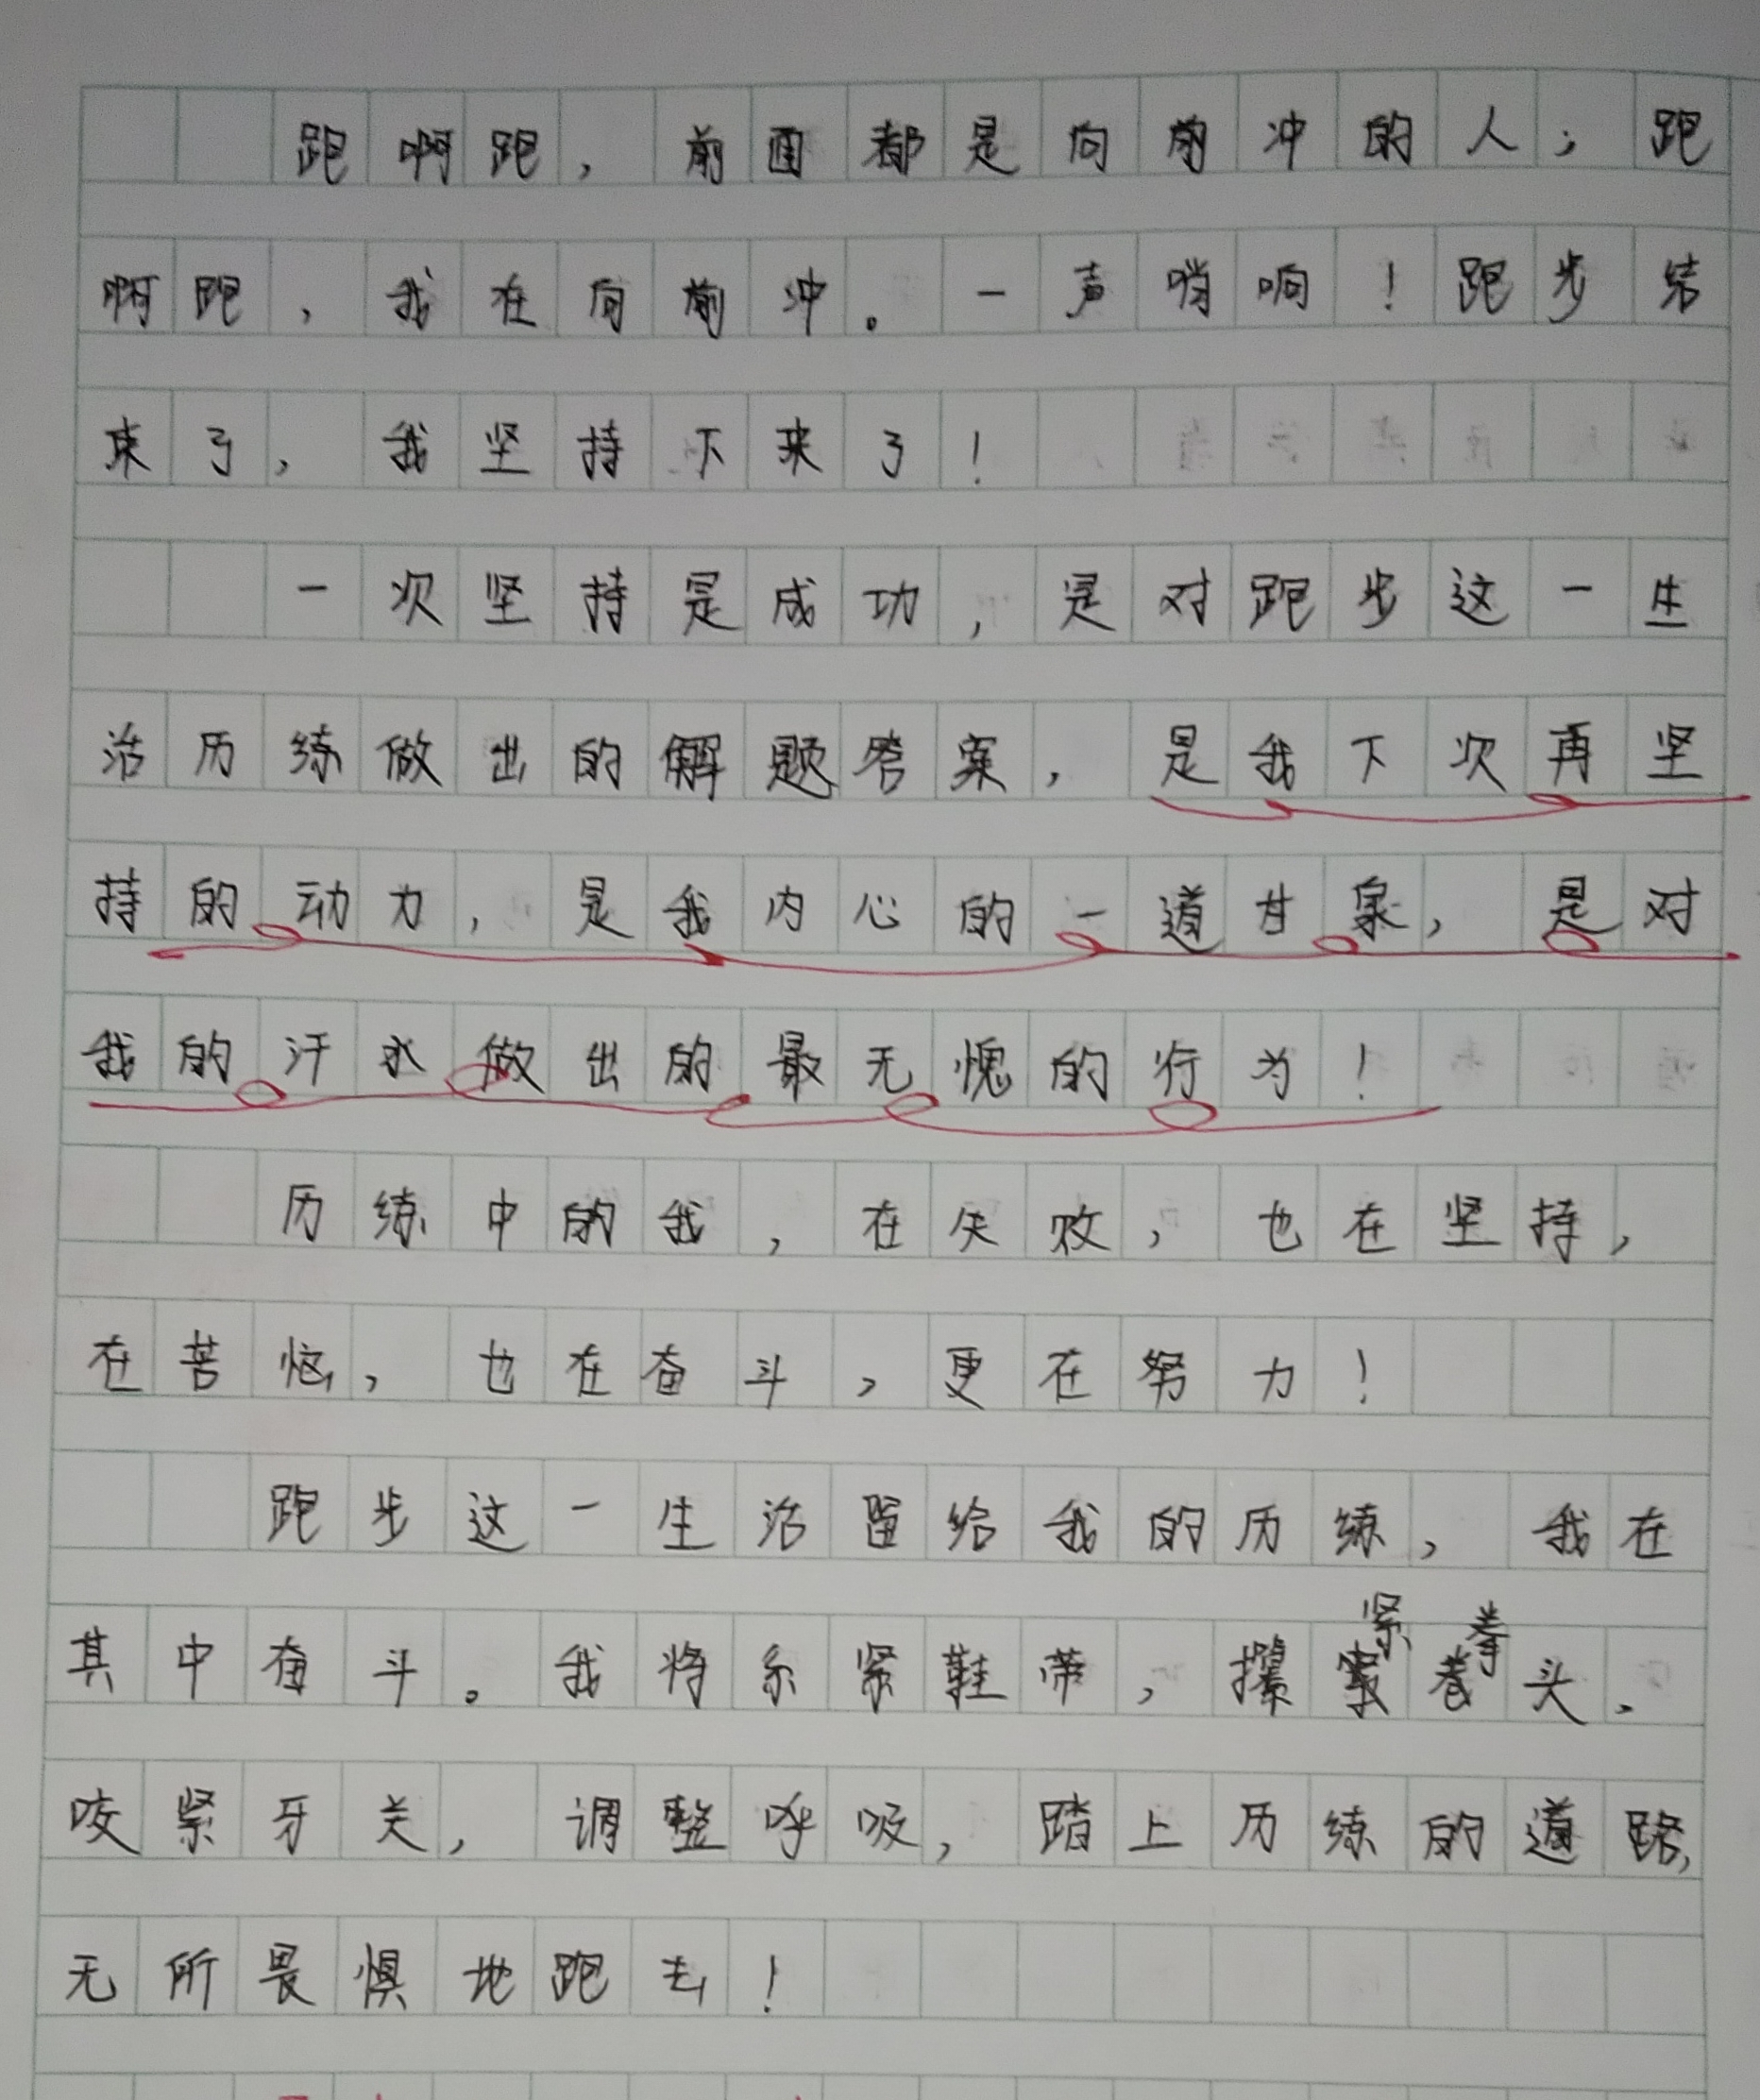 跑啊跑，前面都是向前冲的人；跑
啊跑，我在向前冲。一声哨响！跑步结
束了，我坚持下来了！
一次坚持是成功，是对跑步这一生
活历练做出的解题答案，是我下次再坚
持的动力，是我内心的一道甘泉，是对
我的汗水做出的最无愧的行为！
历练中的我，在失败，也在坚持，
在苦恼，也在奋斗，更在努力！
跑步这一生活留给我的历练，我在
其中奋斗。我将系紧鞋带，攥紧拳头，
咬紧牙关，调整呼吸，踏上历练的道路，
无所畏惧地跑去！